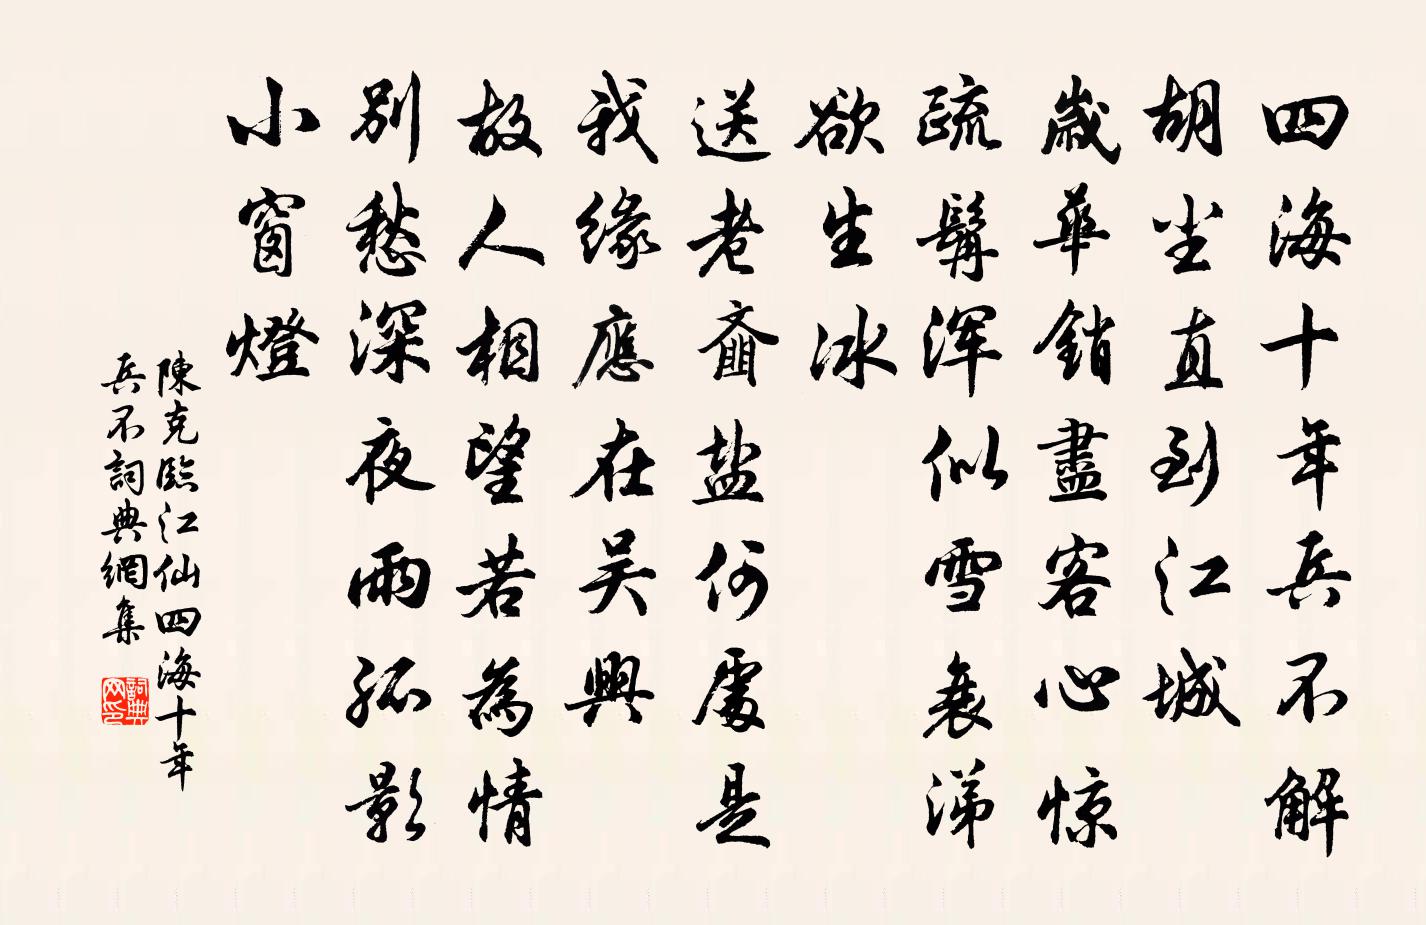 四海十年兵不解
胡尘直到江城
歲華銷盡客心惊
疏髯浑似雪衰涕
欲生冰
送老齑盐何處是
我緣應在吴興
故人相望若為情
别愁深夜雨孤影
小窗燈
陳克臨江仙四海十年
兵不詞典網集
詞典网